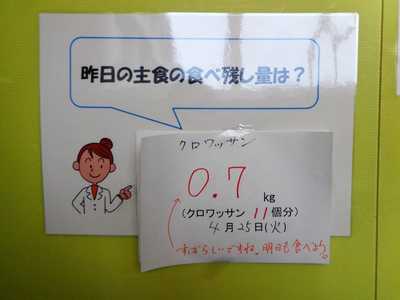 昨日の主食の食べ残し量は？
クロワッサン
0.7 kg
(クロワッサン 11個分)
4月25日(火)
すばらしいですね。明日も食べよう